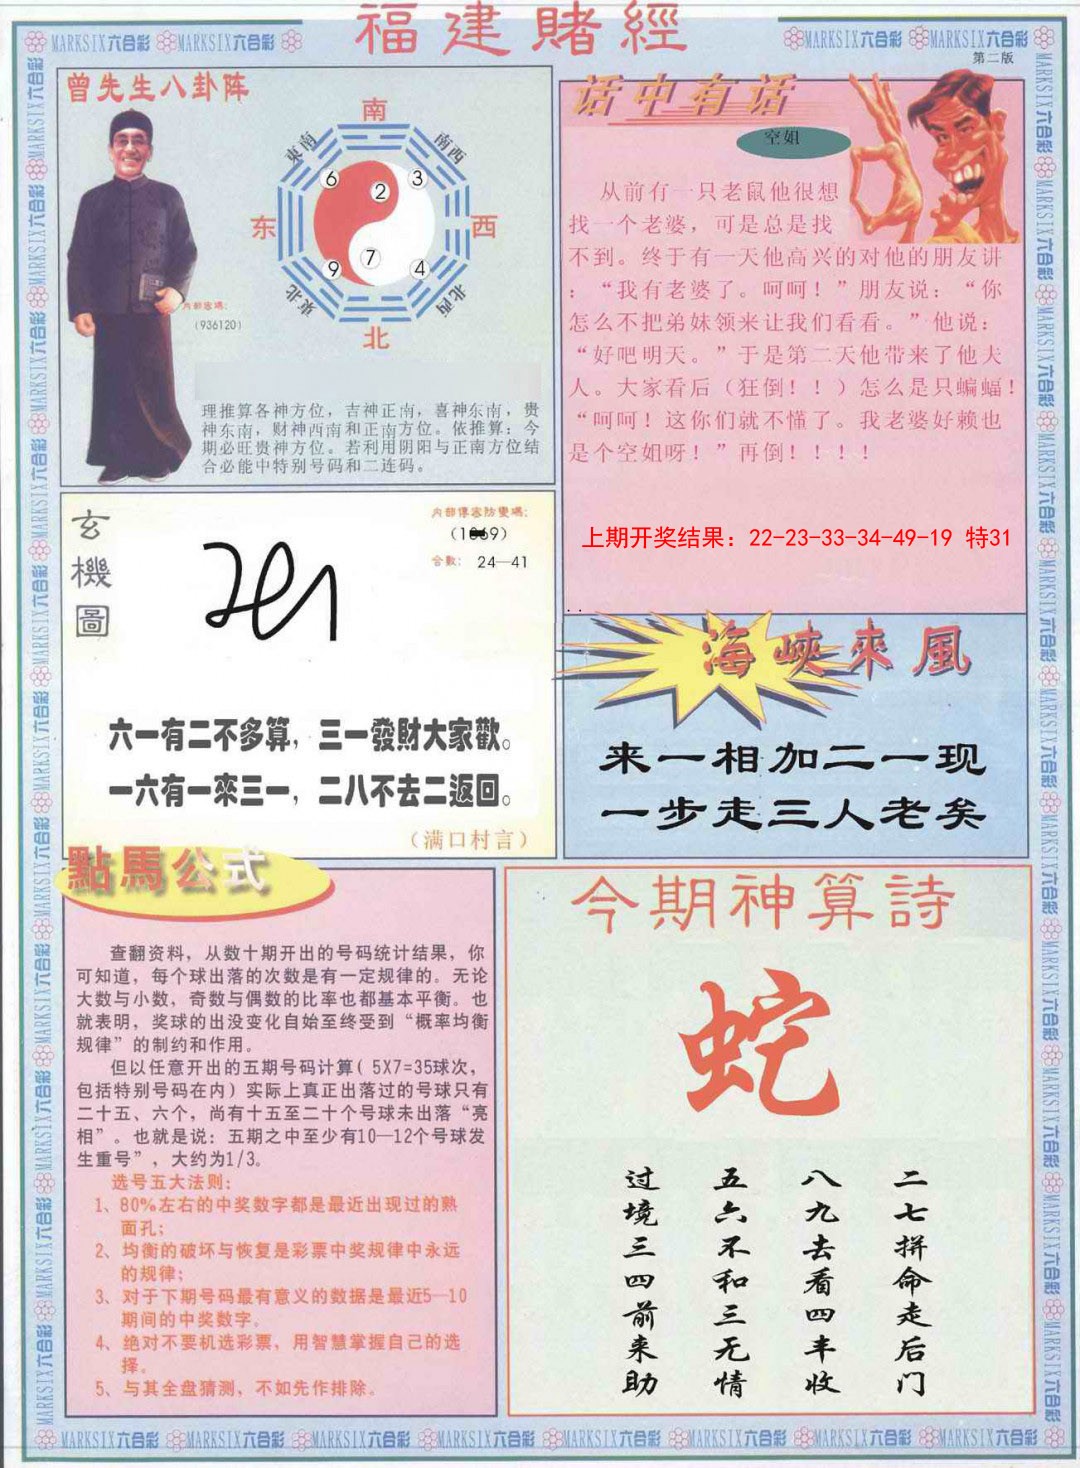 福建賭經
MARKSIX六合彩 MARKSIX六合彩
MARKSIX六合彩 MARKSIX六合彩
第二版
曾先生八卦阵
南
東南
南西
6
2
3
东
西
9
7
4
東北
北西
北
内部密碼：
（936120）
理推算各神方位，吉神正南，喜神东南，贵
神东南，财神西南和正南方位。依推算：今
期必旺贵神方位。若利用阴阳与正南方位结
合必能中特别号码和二连码。
话中有话
空姐
从前有一只老鼠他很想
找一个老婆，可是总是找
不到。终于有一天他高兴的对他的朋友讲
：“我有老婆了。呵呵！”朋友说：“你
怎么不把弟妹领来让我们看看。”他说：
“好吧明天。”于是第二天他带来了他夫
人。大家看后（狂倒！！）怎么是只蝙蝠！
“呵呵！这你们就不懂了。我老婆好赖也
是个空姐呀！”再倒！！！！
上期开奖结果：22-23-33-34-49-19 特31
玄機圖
合數： 24—41
六一有二不多算，三一發財大家歡。
一六有一來三一，二八不去二返回。
（满口村言）
海峽來風
来一相加二一现
一步走三人老矣
點馬公式
查翻资料，从数十期开出的号码统计结果，你
可知道，每个球出落的次数是有一定规律的。无论
大数与小数，奇数与偶数的比率也都基本平衡。也
就表明，奖球的出没变化自始至终受到“概率均衡
规律”的制约和作用。
但以任意开出的五期号码计算（5X7=35球次，
包括特别号码在内）实际上真正出落过的号球只有
二十五、六个，尚有十五至二十个号球未出落“亮
相”。也就是说：五期之中至少有10—12个号球发
生重号”，大约为1/3。
选号五大法则：
1、80%左右的中奖数字都是最近出现过的熟
面孔；
2、均衡的破坏与恢复是彩票中奖规律中永远
的规律；
3、对于下期号码最有意义的数据是最近5—10
期间的中奖数字。
4、绝对不要机选彩票，用智慧掌握自己的选
择。
5、与其全盘猜测，不如先作排除。
今期神算詩
蛇
二七拼命走后门
八九去看四丰收
五六不和三无情
过境三四前来助
MARKSIX六合彩 MARKSIX六合彩 MARKSIX六合彩 MARKSIX六合彩 MARKSIX六合彩 MARKSIX六合彩 MARKSIX六合彩 MARKSIX六合彩